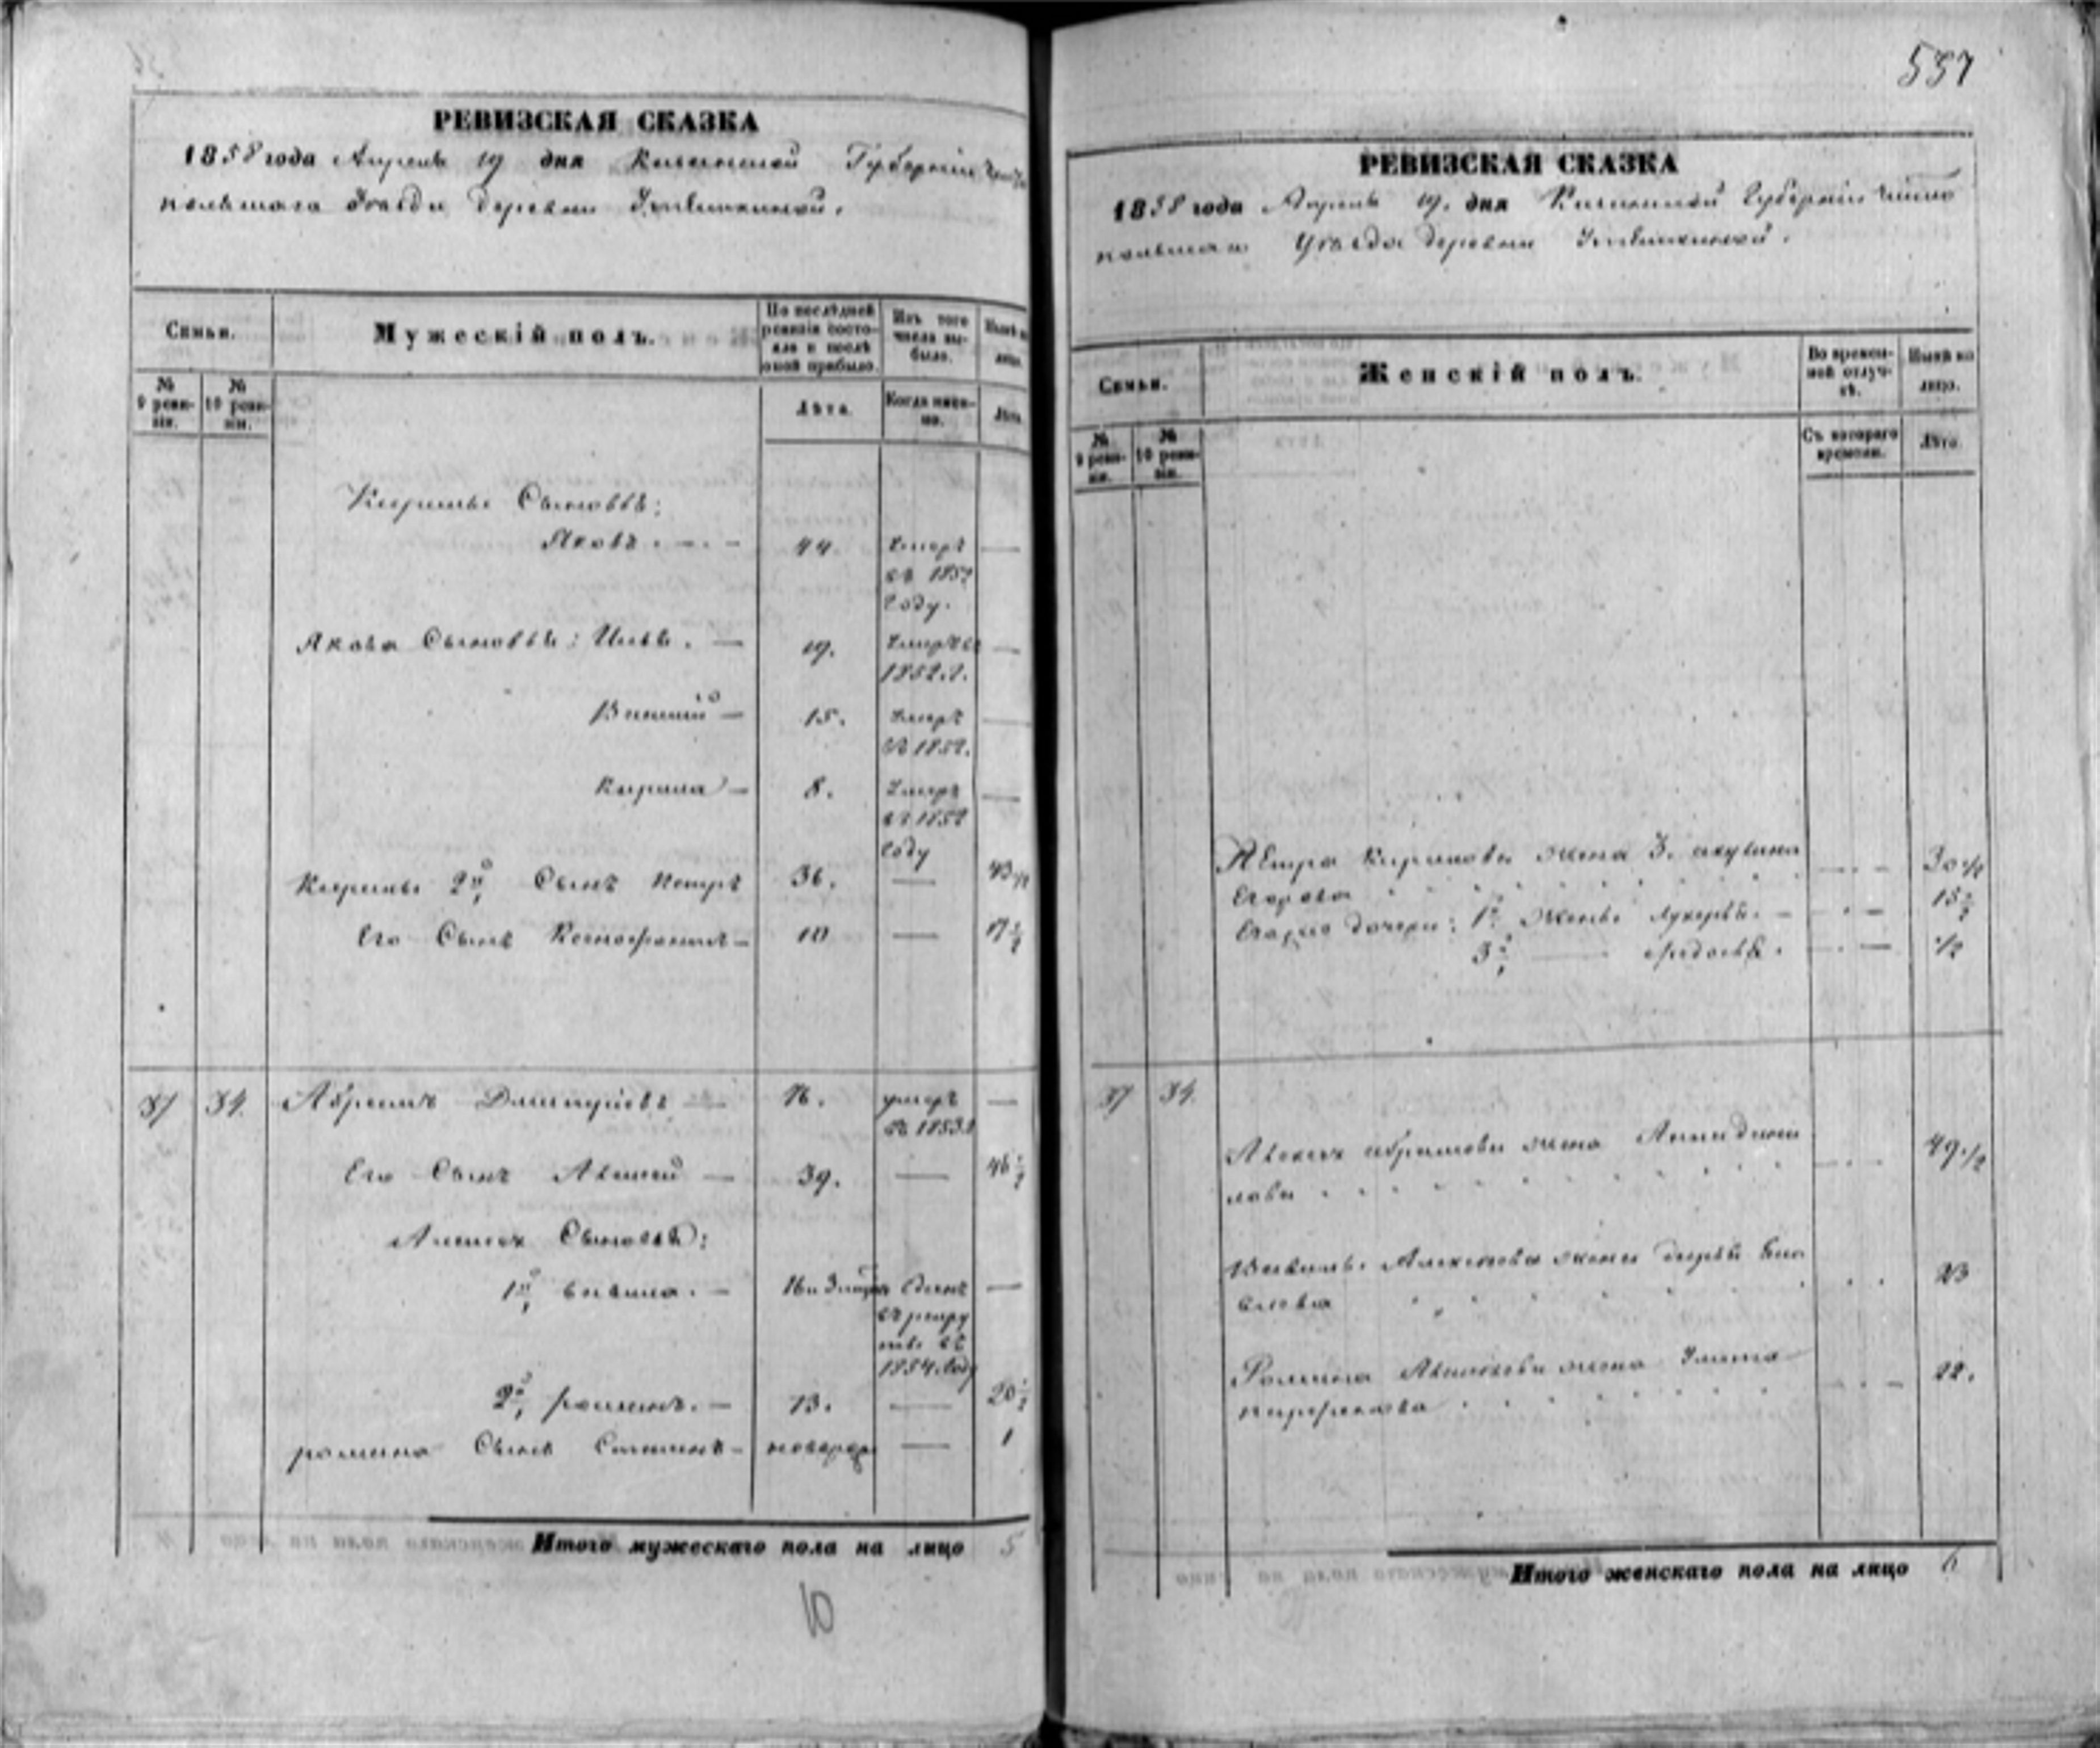 РЕВИЗСКАЯ СКАЗКА
1858 года Апреля 19 дня Казанской Губернии Чисто
польскаго Уезда деревни
Семьи.
Мужескій полъ.
По послѣдней ревизіи состояло и послѣ оной прибыло.
Изъ того числа выбыло.
Нынѣ на лицо.
№ 9 ревизіи.
№ 10 ревизіи.
Лѣта.
Когда именно.
Лѣта.
Кирилы Сыновьѣ:
Яковъ . - . - 44 Умеръ —
въ 1852
году.
Якова Сыновьѣ: . — 19. Умеръ въ —
1852. г.
Василій — 15. Умеръ —
въ 1852.
Кирила — 8. Умеръ —
въ 1852
году
Кирилы 2й Сынъ Петръ 36. — 43 1/2
Его Сынъ 10 — 17 1/2
37 34. Абрамъ Дмитріевъ — 76. умеръ —
въ 1853 г
Его Сынъ Алексей — 39. — 46 1/2
Алексея Сыновьѣ:
1й Вавила . — 16 и Зданъ —
въ рекру
ты въ
1854 году
2й романъ. — 13. — 20 1/2
романа Сынъ — новорож — 1
Итого мужескаго пола на лицо 5
10
537
РЕВИЗСКАЯ СКАЗКА
1858 года Апреля 19. дня Казанской Губерніи Чисто
польскаго Уезда деревни
Семьи.
Женскій полъ.
Во временной отлучкѣ.
Нынѣ на лицо.
№ 9 ревизіи.
№ 10 ревизіи.
Съ котораго времени.
Лѣта.
Петра Кирилова жена 3. акулина 30 1/2
Егорова
дочери: 1й жены лукерья. — 15 1/2
3й — федосья. 1/2
37 34.
Алексея абрамова жена Данил 49. 1/2
лова
Вавилы Алексеева жена дарья 23
Романа Алексеева жена Улита 22.
Итого женскаго пола на лицо 6